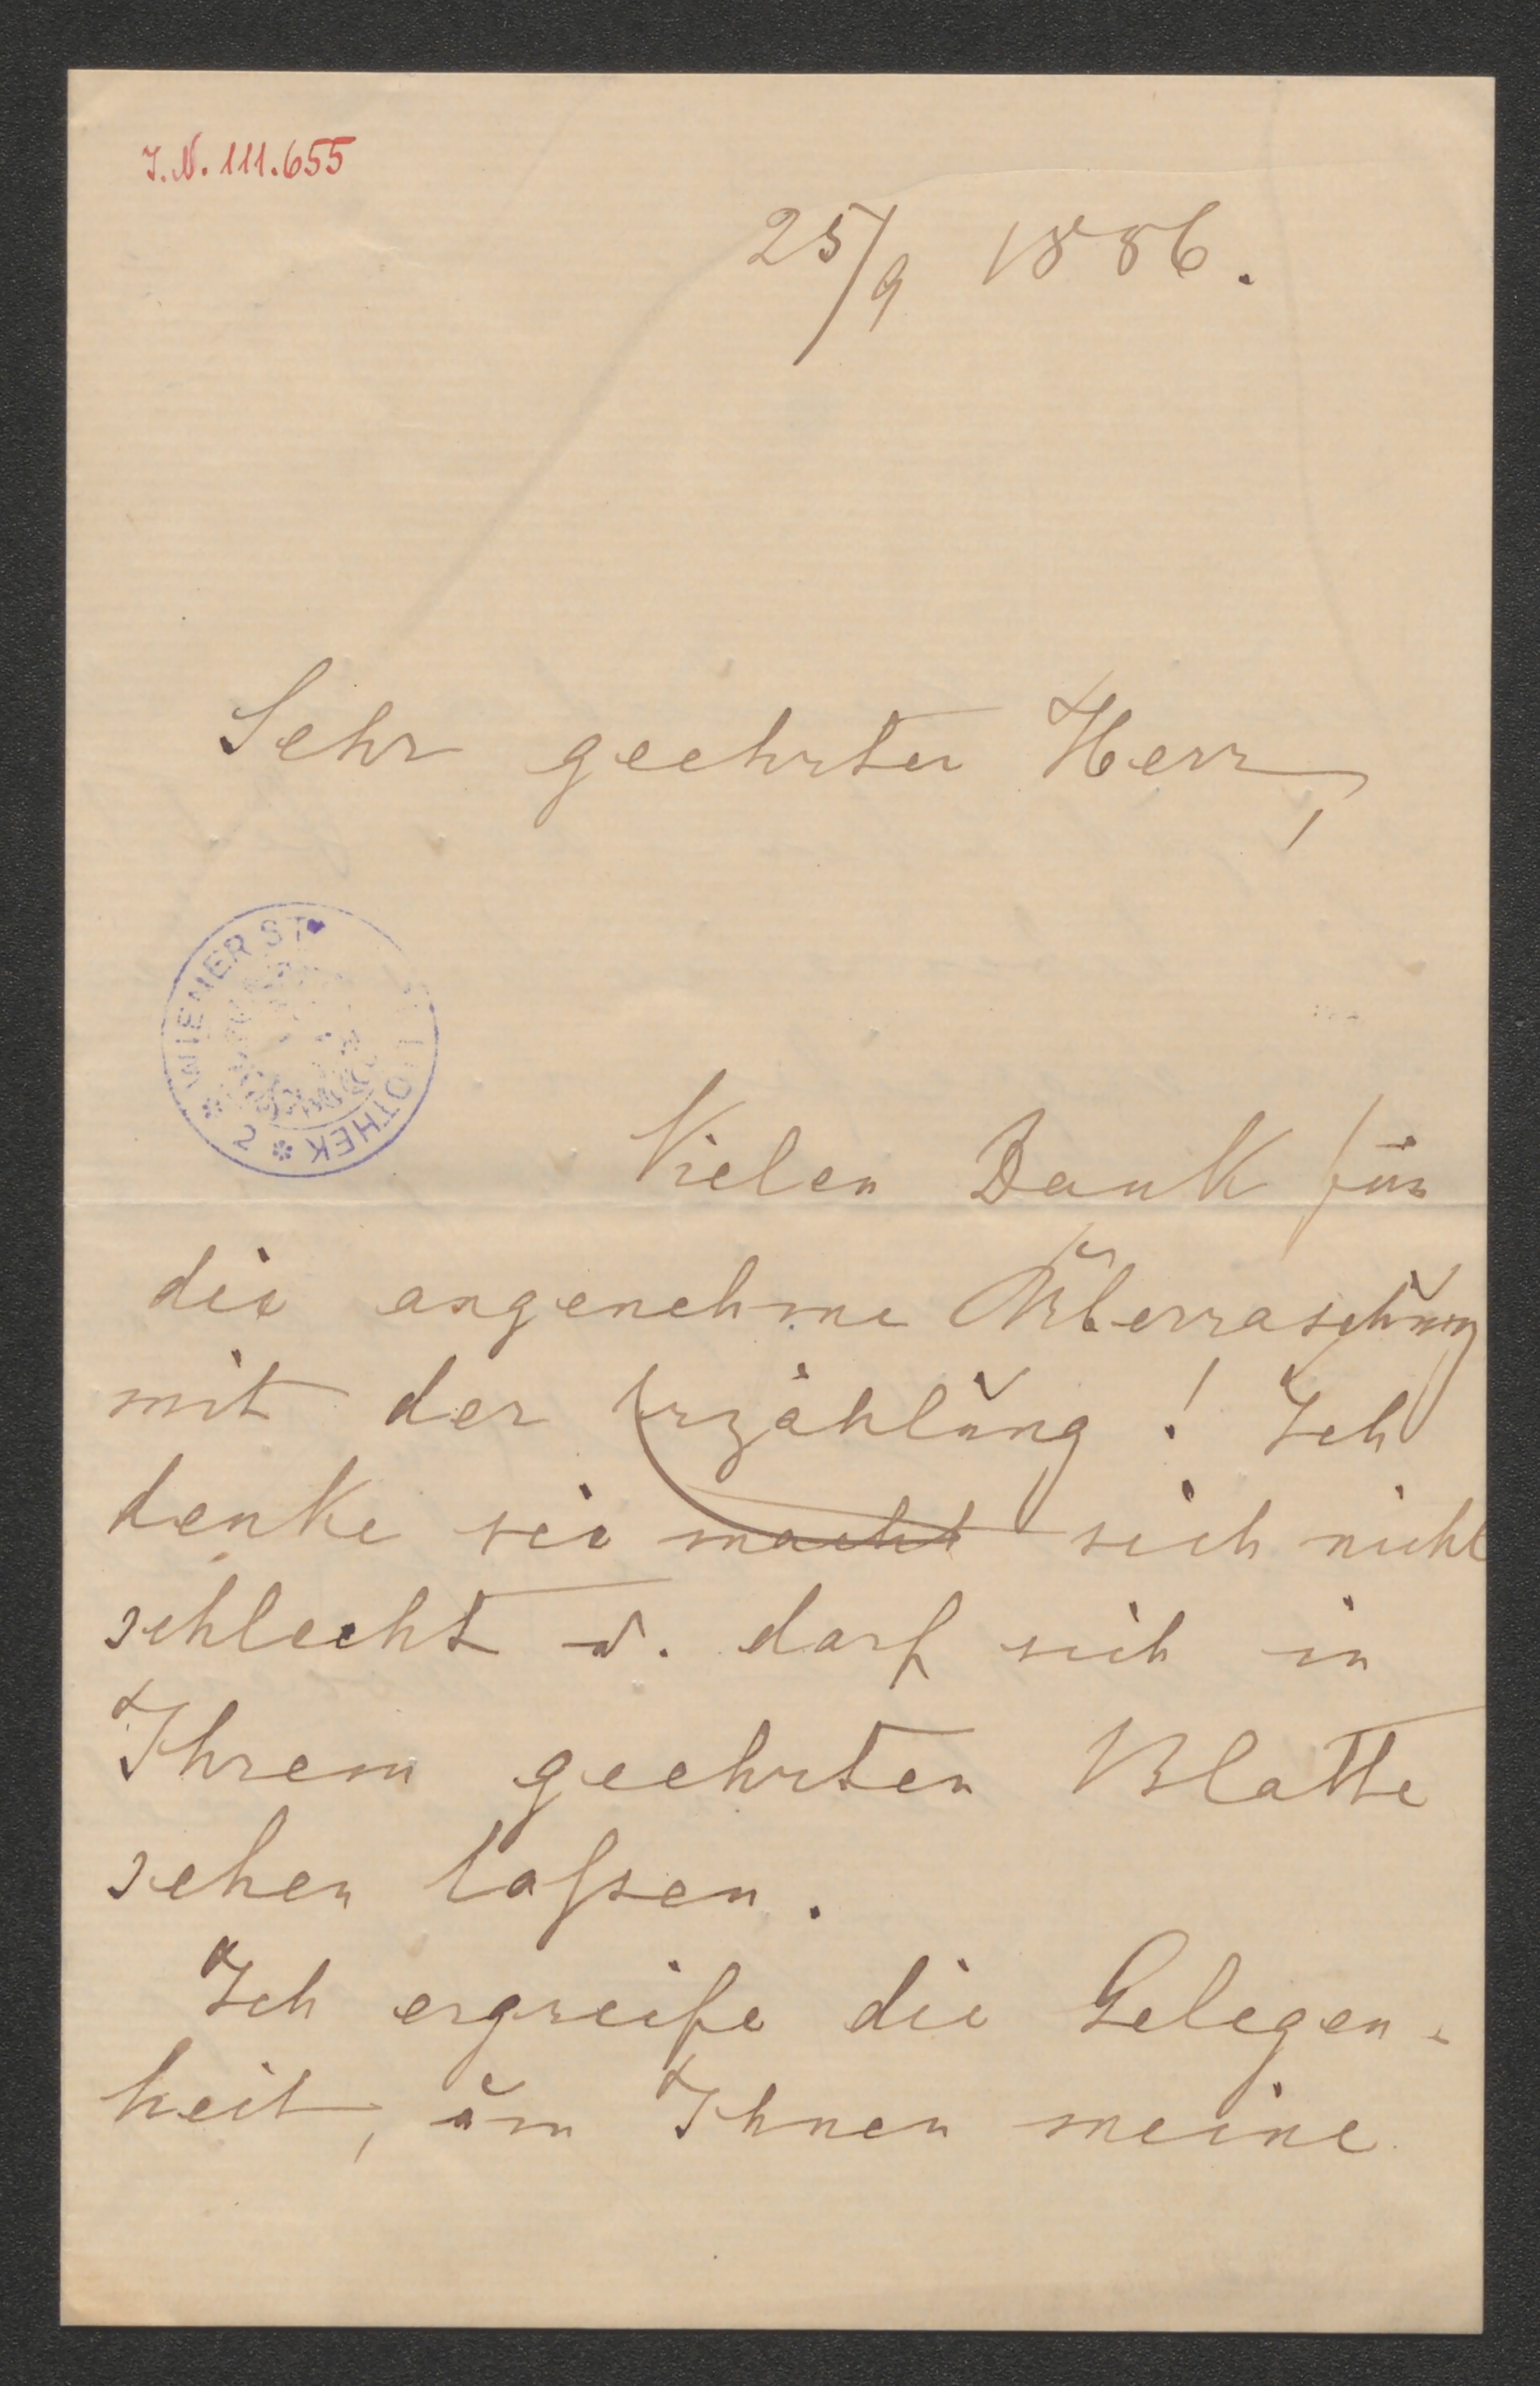 J.N. 111.655
25/9 1886.
Sehr geehrter Herr,
WIENER ST BLIOTHEK * 2 *
Vielen Dank für
die angenehme Überraschung
mit der Erzählung! Ich
denke sie macht sich nicht
schlecht u. darf sich in
Ihrem geehrten Blatte
sehen laſsen.
Ich ergreife die Gelegen-
heit, um Ihnen meine